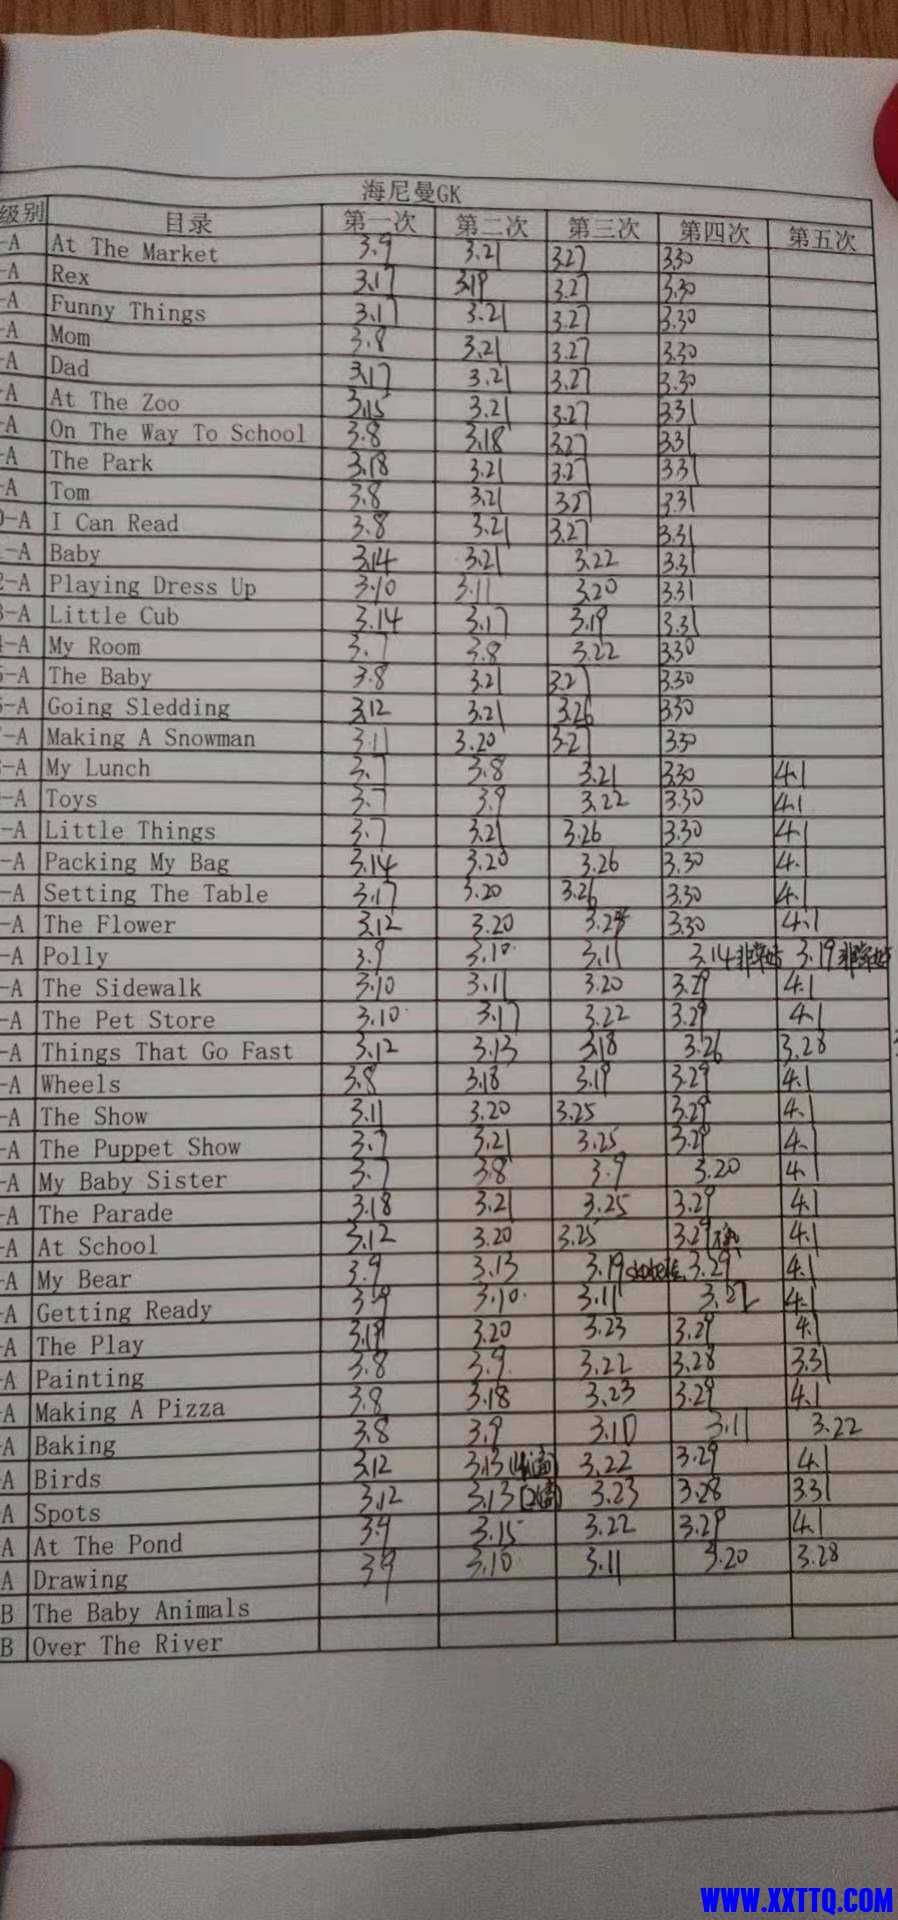 海尼曼GK
级别 目录 第一次 第二次 第三次 第四次 第五次
-A At The Market 3.9 3.21 3.27 3.30
-A Rex 3.17 3.19 3.27 3.30
-A Funny Things 3.17 3.21 3.27 3.30
-A Mom 3.8 3.21 3.27 3.30
-A Dad 3.17 3.21 3.27 3.30
-A At The Zoo 3.15 3.21 3.27 3.31
-A On The Way To School 3.8 3.18 3.27 3.31
-A The Park 3.18 3.21 3.27 3.31
-A Tom 3.8 3.21 3.27 3.31
0-A I Can Read 3.8 3.21 3.27 3.31
1-A Baby 3.14 3.21 3.22 3.31
2-A Playing Dress Up 3.10 3.11 3.20 3.31
3-A Little Cub 3.14 3.17 3.19 3.31
4-A My Room 3.7 3.8 3.22 3.30
5-A The Baby 3.8 3.21 3.27 3.30
6-A Going Sledding 3.12 3.21 3.26 3.30
7-A Making A Snowman 3.11 3.20 3.27 3.30
-A My Lunch 3.7 3.8 3.21 3.30 4.1
-A Toys 3.7 3.9 3.22 3.30 4.1
-A Little Things 3.7 3.21 3.26 3.30 4.1
-A Packing My Bag 3.14 3.20 3.26 3.30 4.1
-A Setting The Table 3.17 3.20 3.26 3.30 4.1
-A The Flower 3.12 3.20 3.30 4.1
-A Polly 3.9 3.10 3.11 3.14非常好 3.19非常好
-A The Sidewalk 3.10 3.11 3.20 3.29 4.1
-A The Pet Store 3.10 3.17 3.22 3.29 4.1
-A Things That Go Fast 3.12 3.13 3.18 3.26 3.28
-A Wheels 3.8 3.18 3.19 3.29 4.1
-A The Show 3.11 3.20 3.25 3.29 4.1
-A The Puppet Show 3.7 3.21 3.25 3.29 4.1
-A My Baby Sister 3.7 3.8 3.9 3.20 4.1
-A The Parade 3.18 3.21 3.25 3.29 4.1
-A At School 3.12 3.20 3.25 3.29 4.1
-A My Bear 3.9 3.13 3.19 3.29 4.1
-A Getting Ready 3.9 3.10 3.11 4.1
-A The Play 3.19 3.20 3.23 3.29 4.1
-A Painting 3.8 3.9 3.22 3.28 3.31
-A Making A Pizza 3.8 3.18 3.23 3.29 4.1
-A Baking 3.8 3.9 3.10 3.11 3.22
-A Birds 3.12 3.13 3.22 3.29 4.1
-A Spots 3.12 3.13 3.23 3.28 3.31
A At The Pond 3.9 3.15 3.22 3.29 4.1
A Drawing 3.9 3.10 3.11 3.20 3.28
B The Baby Animals
B Over The River
WWW.XXTTQ.COM